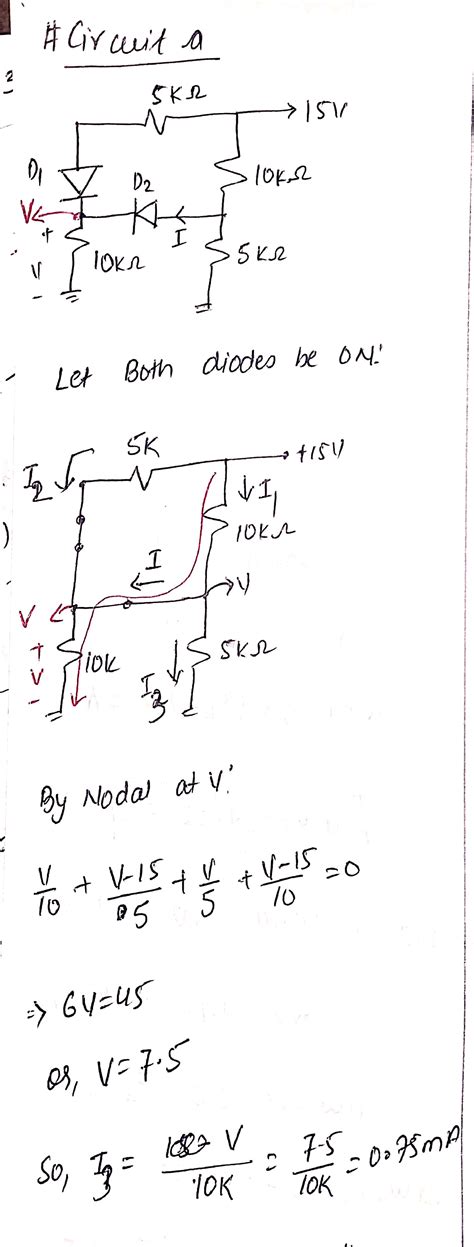 # Circuit a
5KΩ
→15V
D1
D2
10KΩ
V
+
I
V
10KΩ
5KΩ
-
Let Both diodes be ON:
5K
+15V
I2
I1
10KΩ
I
V
V
+
V
10K
5KΩ
-
I3
By Nodal at V:
V/10 + V-15/5 + V/5 + V-15/10 = 0
⇒ 6V=45
or, V = 7.5
So, I3 = V/10K = 7.5/10K = 0.75mA